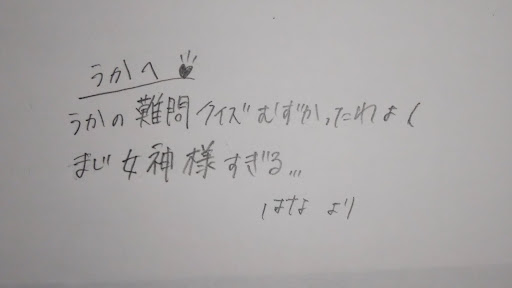 うかへ
うかの難問クイズむずかったわよ〜
まじ女神様すぎる...
はなより